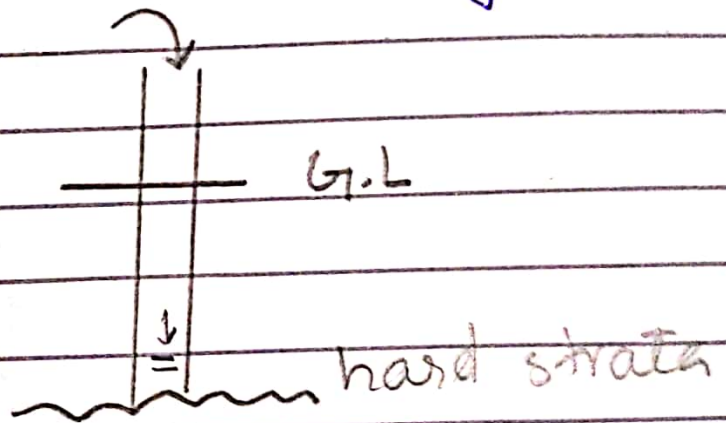 G.L
hard strata